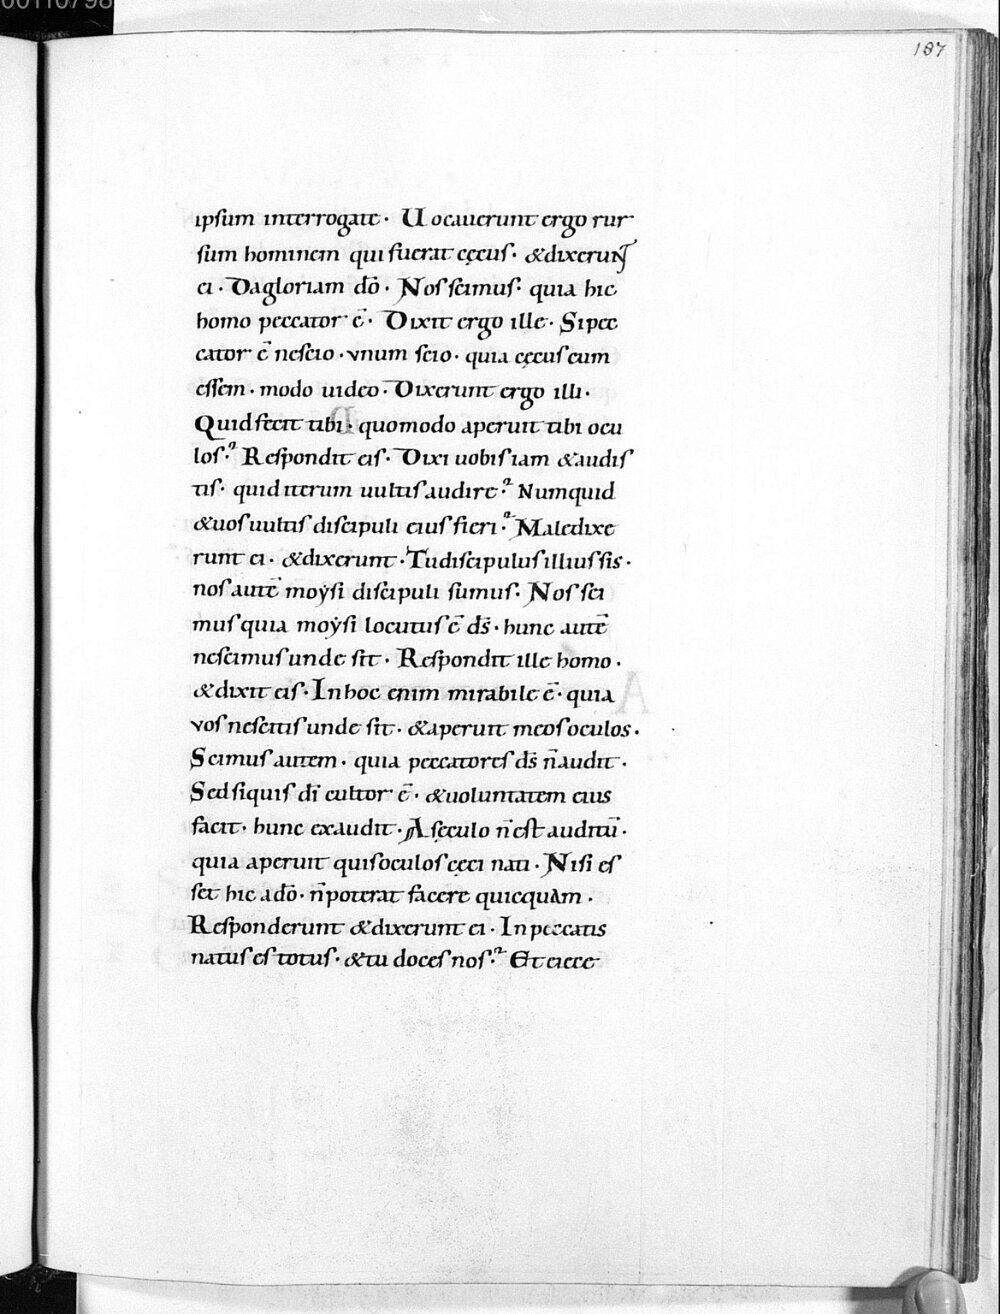 00110798
187
ipsum interrogate. Uocauerunt ergo rur
sum hominem qui fuerat cęcus. & dixerunt
ei. Da gloriam dō. Nos scimus. quia hic
homo peccator ē. Dixit ergo ille. Si pec
cator ē nescio. vnum scio. quia cęcus cum
essem. modo uideo. Dixerunt ergo illi.
Quid fecit tibi. quomodo aperuit tibi ocu
los? Respondit eis. Dixi uobis iam & audis
tis. quid iterum uultis audire? Numquid
& uos uultis discipuli eius fieri? Maledixe
runt ei. & dixerunt. Tu discipulus illius sis.
nos autē moẏsi discipuli sumus. Nos sci
mus quia moẏsi locutus ē ds̄. hunc autē
nescimus unde sit. Respondit ille homo.
& dixit eis. In hoc enim mirabile ē. quia
vos nescitis unde sit. & aperuit meos oculos.
Scimus autem. quia peccatores ds̄ n̄ audit.
Sed si quis dī cultor ē. & uoluntatem eius
facit. hunc exaudit. A sęculo n̄ est auditū.
quia aperuit quis oculos cęci nati. Nisi es
set hic a dō. n̄ poterat facere quicquam.
Responderunt & dixerunt ei. In peccatis
natus es totus. & tu doces nos? Et eiece